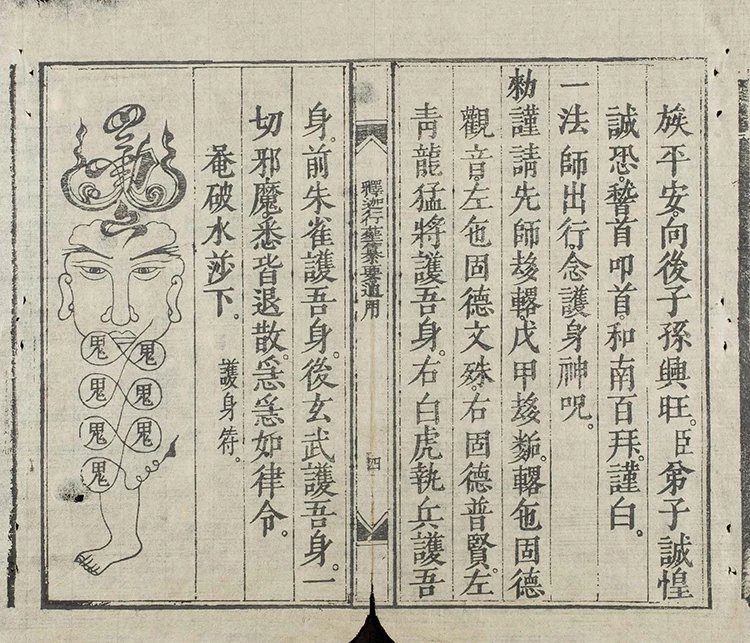 族平安。向後子孫興旺。臣弟子誠惶
誠恐。稽首叩首。和南百拜。謹白。
一法師出行。念護身神咒。
勅謹請先師。戊甲。㐌固德
觀音。左㐌固德文殊。右固德普賢。左
青龍猛將護吾身。右白虎執兵護吾
釋迦行纂要通用
四
身。前朱雀護吾身。後玄武護吾身。一
切邪魔。悉皆退散。急急如律令。
菴破水莎下。
護身符。
鬼鬼
鬼鬼
鬼鬼
鬼